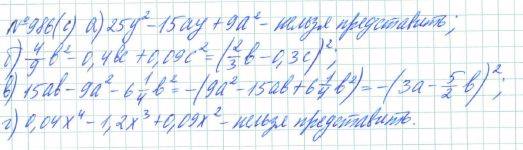 №986(с) а) 25y² - 15ay + 9a² - нельзя представить;
б) 4/9 b² - 0,4bc + 0,09c² = (2/3 b - 0,3c)²;
в) 15ab - 9a² - 6 1/4 b² = -(9a² - 15ab + 6 1/4 b²) = -(3a - 5/2 b)²;
г) 0,04x⁴ - 1,2x³ + 0,09x² - нельзя представить.